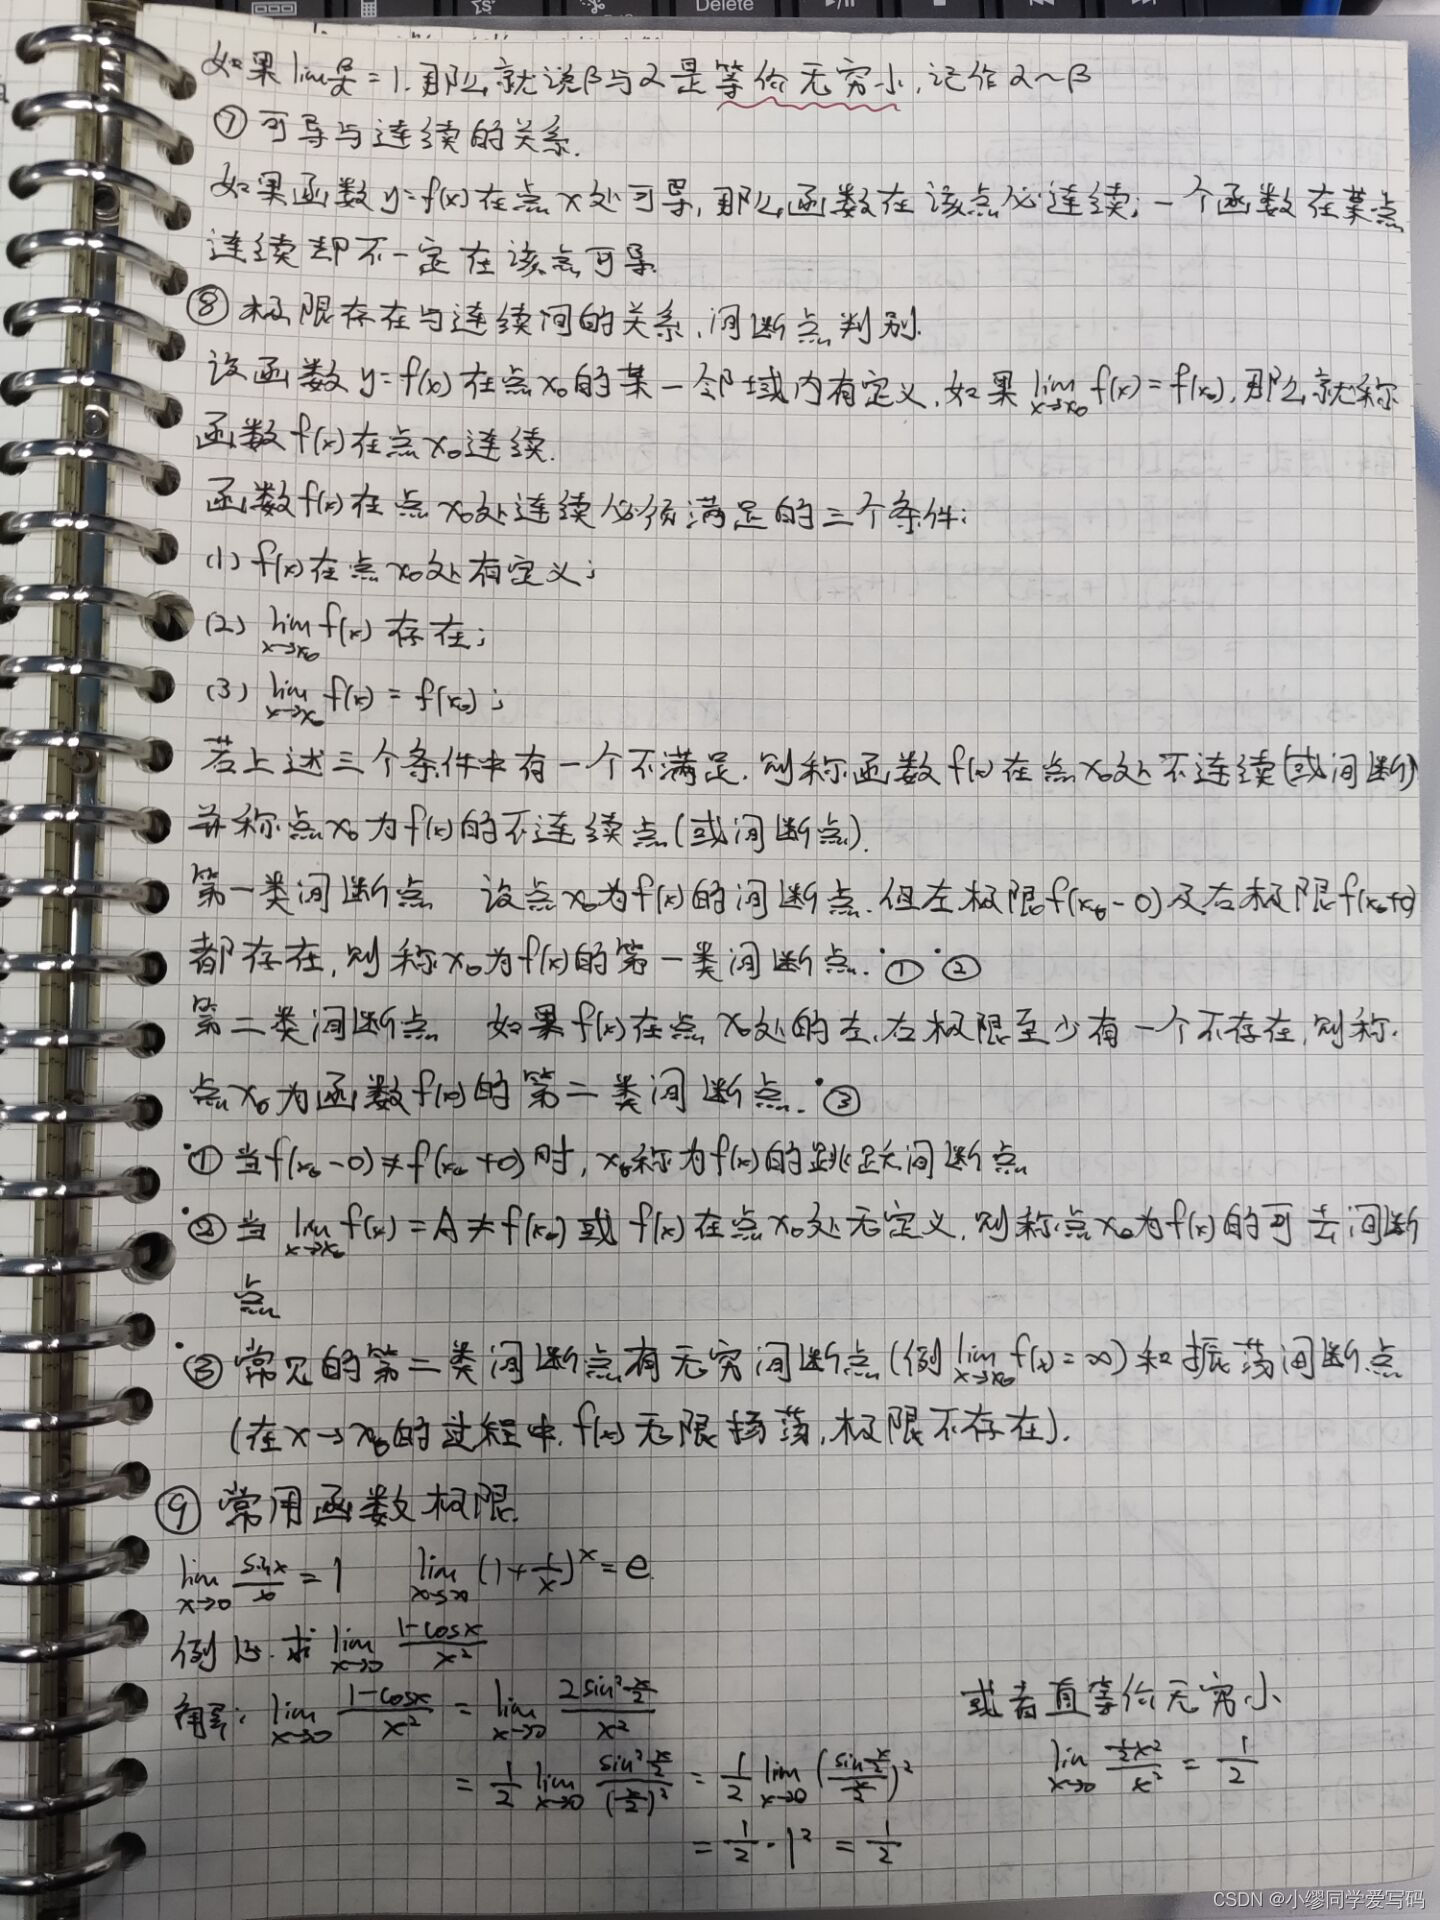 Delete
如果lim β/α = 1, 那么就说β与α是等价无穷小, 记作α~β
⑦可导与连续的关系.
如果函数y=f(x)在点x处可导, 那么函数在该点必连续; 一个函数在某点
连续却不一定在该点可导.
⑧极限存在与连续间的关系, 间断点判别.
设函数y=f(x)在点x₀的某一邻域内有定义, 如果lim x→x₀ f(x)=f(x₀), 那么就称
函数f(x)在点x₀连续.
函数f(x)在点x₀处连续必须满足的三个条件:
(1) f(x)在点x₀处有定义;
(2) lim x→x₀ f(x)存在;
(3) lim x→x₀ f(x) = f(x₀);
若上述三个条件中有一个不满足, 则称函数f(x)在点x₀处不连续(或间断)
并称点x₀为f(x)的不连续点(或间断点).
第一类间断点 设点x₀为f(x)的间断点, 但左极限f(x₀-0)及右极限f(x₀+0)
都存在, 则称x₀为f(x)的第一类间断点.·①·②
第二类间断点 如果f(x)在点x₀处的左、右极限至少有一个不存在, 则称
点x₀为函数f(x)的第二类间断点.·③
·①当f(x₀-0)≠f(x₀+0)时, x₀称为f(x)的跳跃间断点
·②当 lim x→x₀ f(x) = A ≠ f(x₀)或f(x)在点x₀处无定义, 则称点x₀为f(x)的可去间断
点
·③常见的第二类间断点有无穷间断点(例lim x→x₀ f(x)=∞)和振荡间断点
(在x→x₀的过程中, f(x)无限振荡, 极限不存在).
⑨常用函数极限.
lim x→0 sinx/x = 1 lim x→∞ (1+1/x)^x = e
例15. 求lim x→0 (1-cosx)/x²
解: lim x→0 (1-cosx)/x² = lim x→0 (2sin² x/2)/x² 或者直等价无穷小
= 1/2 lim x→0 (sin² x/2)/(x/2)² = 1/2 lim x→0 ((sin x/2)/(x/2))² lim x→0 (1/2 x²)/x² = 1/2
= 1/2 · 1² = 1/2
CSDN @小缪同学爱写码